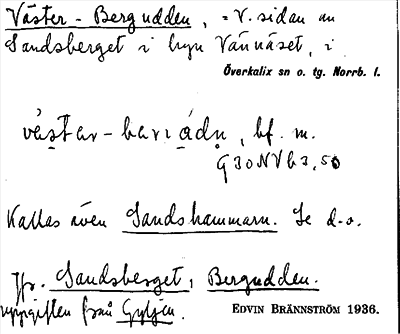 Väster-Bergudden, = V. sidan av
Sandsberget i byn Vännäset, i
Överkalix sn o. tg. Norrb. l.
bf. m.
Kallas även Sandshammarn. Se d.o.
Jfr. Sandsberget, Bergudden.
från Gyljen.
EDVIN BRÄNNSTRÖM 1936.